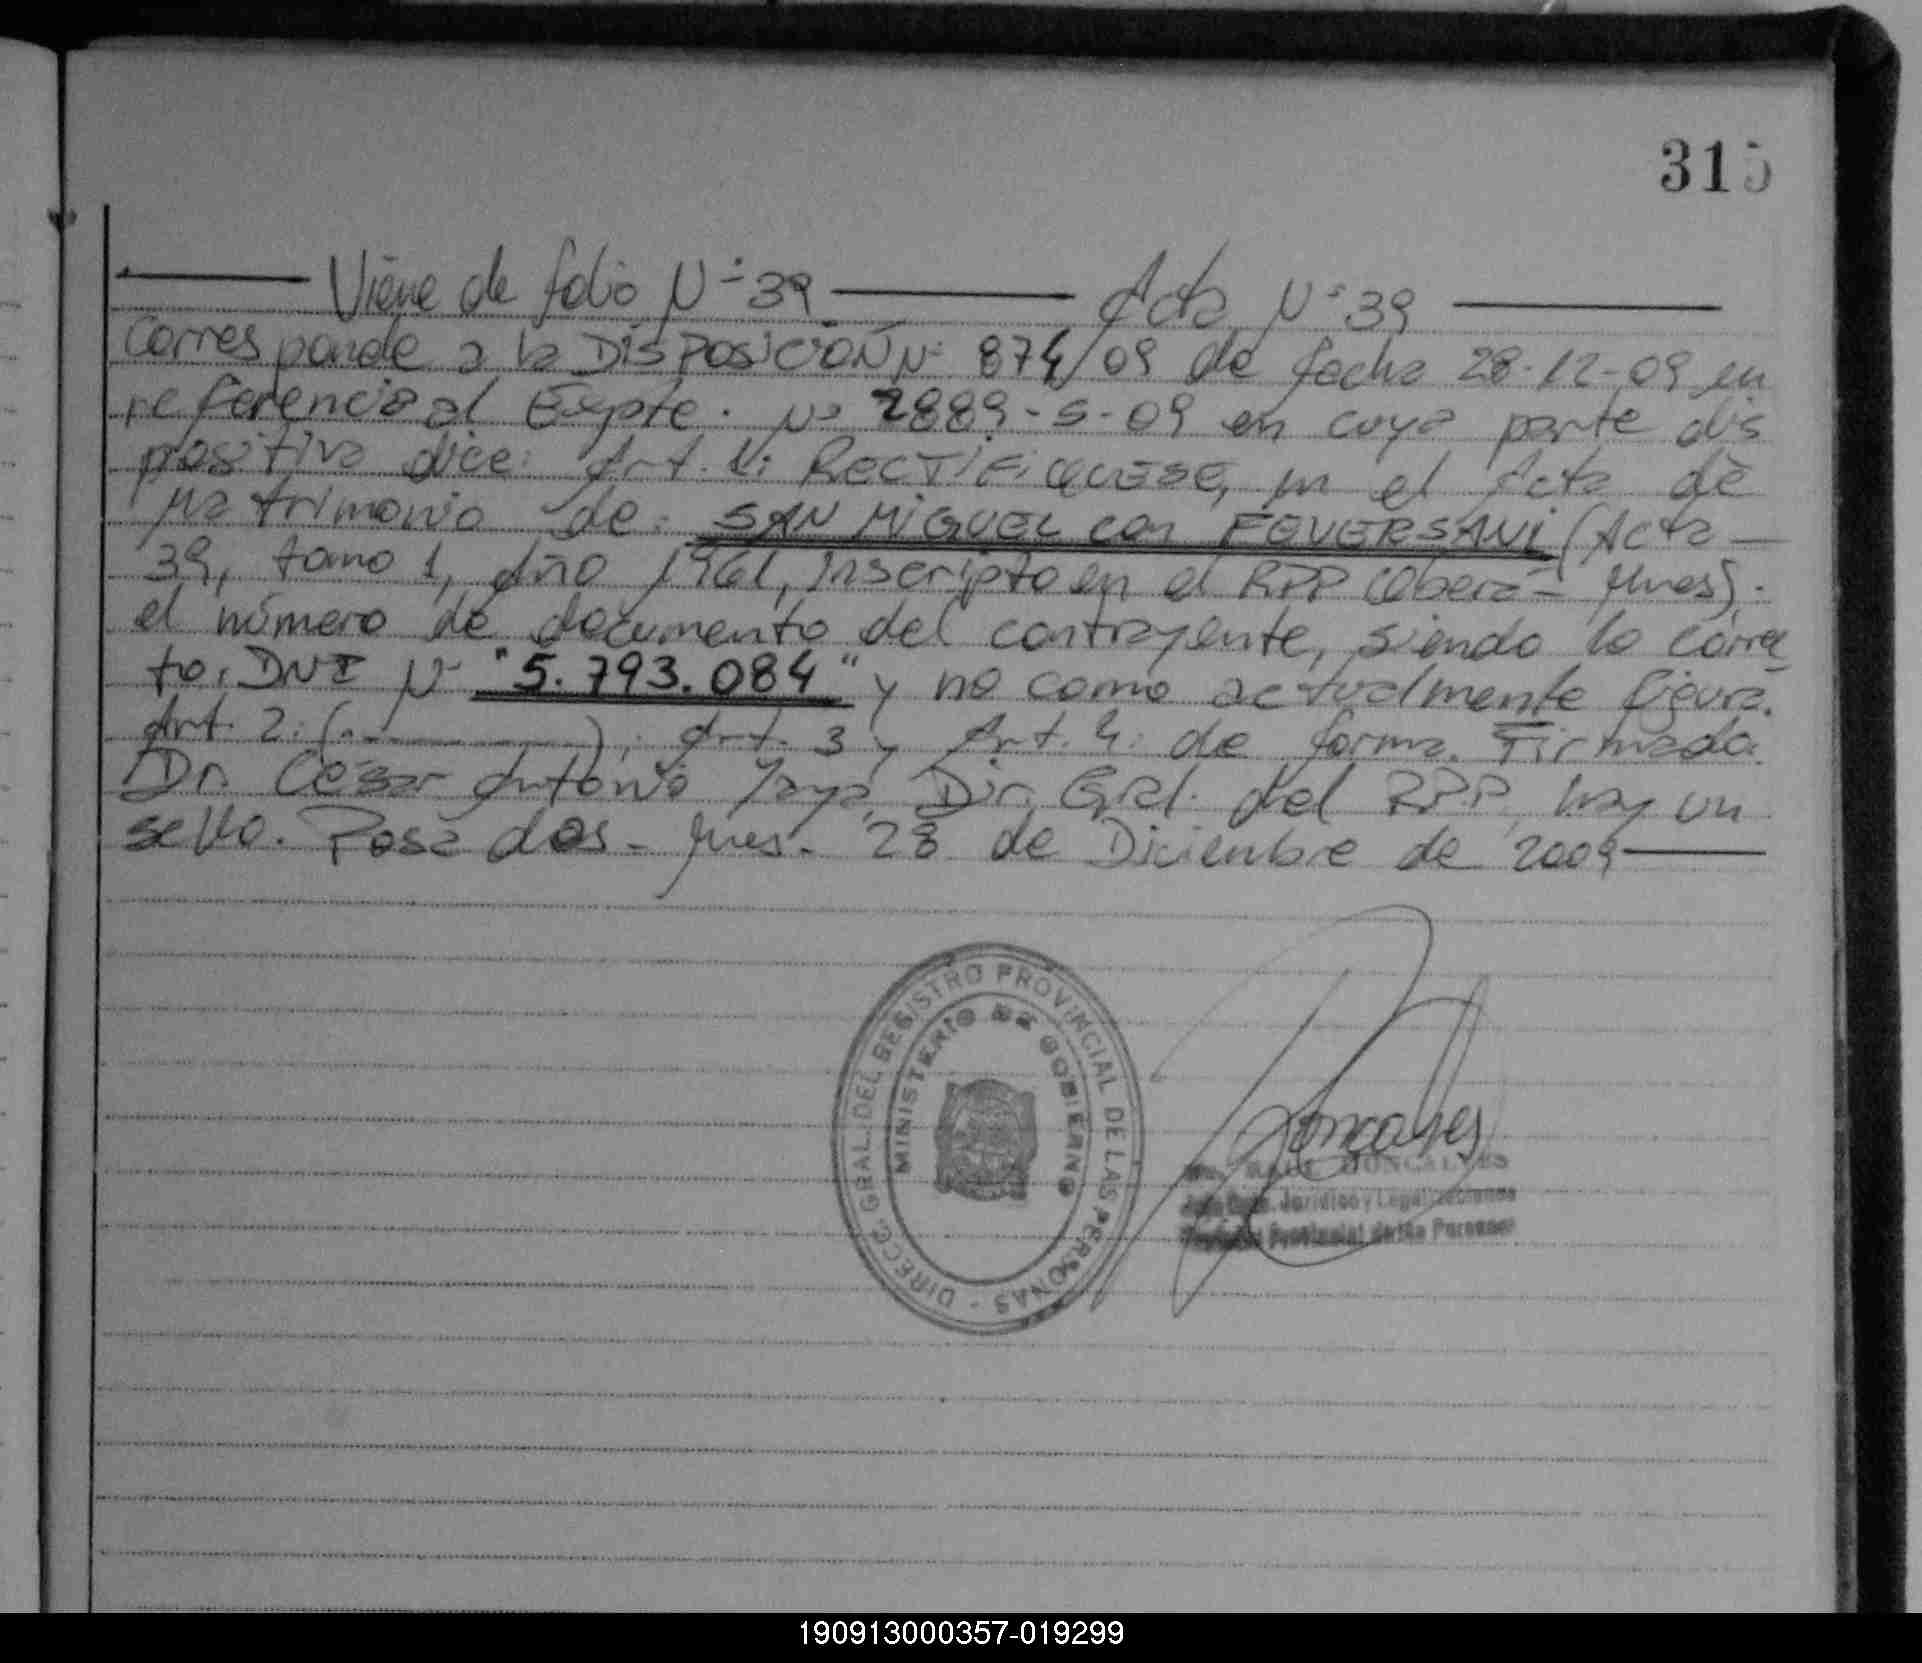 315
Viene de folio Nº 39 Acta Nº 39
Corresponde a la DISPOSICIÓN Nº 874/09 de fecha 28-12-09 en
referencia al Expte. Nº 2889-S-09 en cuya parte dis
positiva dice: Art. 1: RECTIFIQUESE, en el Acta de
Matrimonio de: SAN MIGUEL con FEVERSANI (Acta
39, tomo 1, año 1961, inscripto en el RPP Oberá - Mnes).
el número de documento del contrayente, siendo lo correc
to, DNI Nº "5.793.084" y no como actualmente figura.
Art. 2: (.........), Art. 3 y Art. 4: de forma. Firmado.
Dr. César Antonio Yaya, Dir. Gral. del RPP, hay un
sello. Posadas - Mnes. 28 de Diciembre de 2009
DIRECC. GRAL. DEL REGISTRO PROVINCIAL DE LAS PERSONAS -
MINISTERIO DE GOBIERNO
Goncalves
RAUL GONCALVES
Jurídico y Legalizaciones
Provincial de las Personas
190913000357-019299